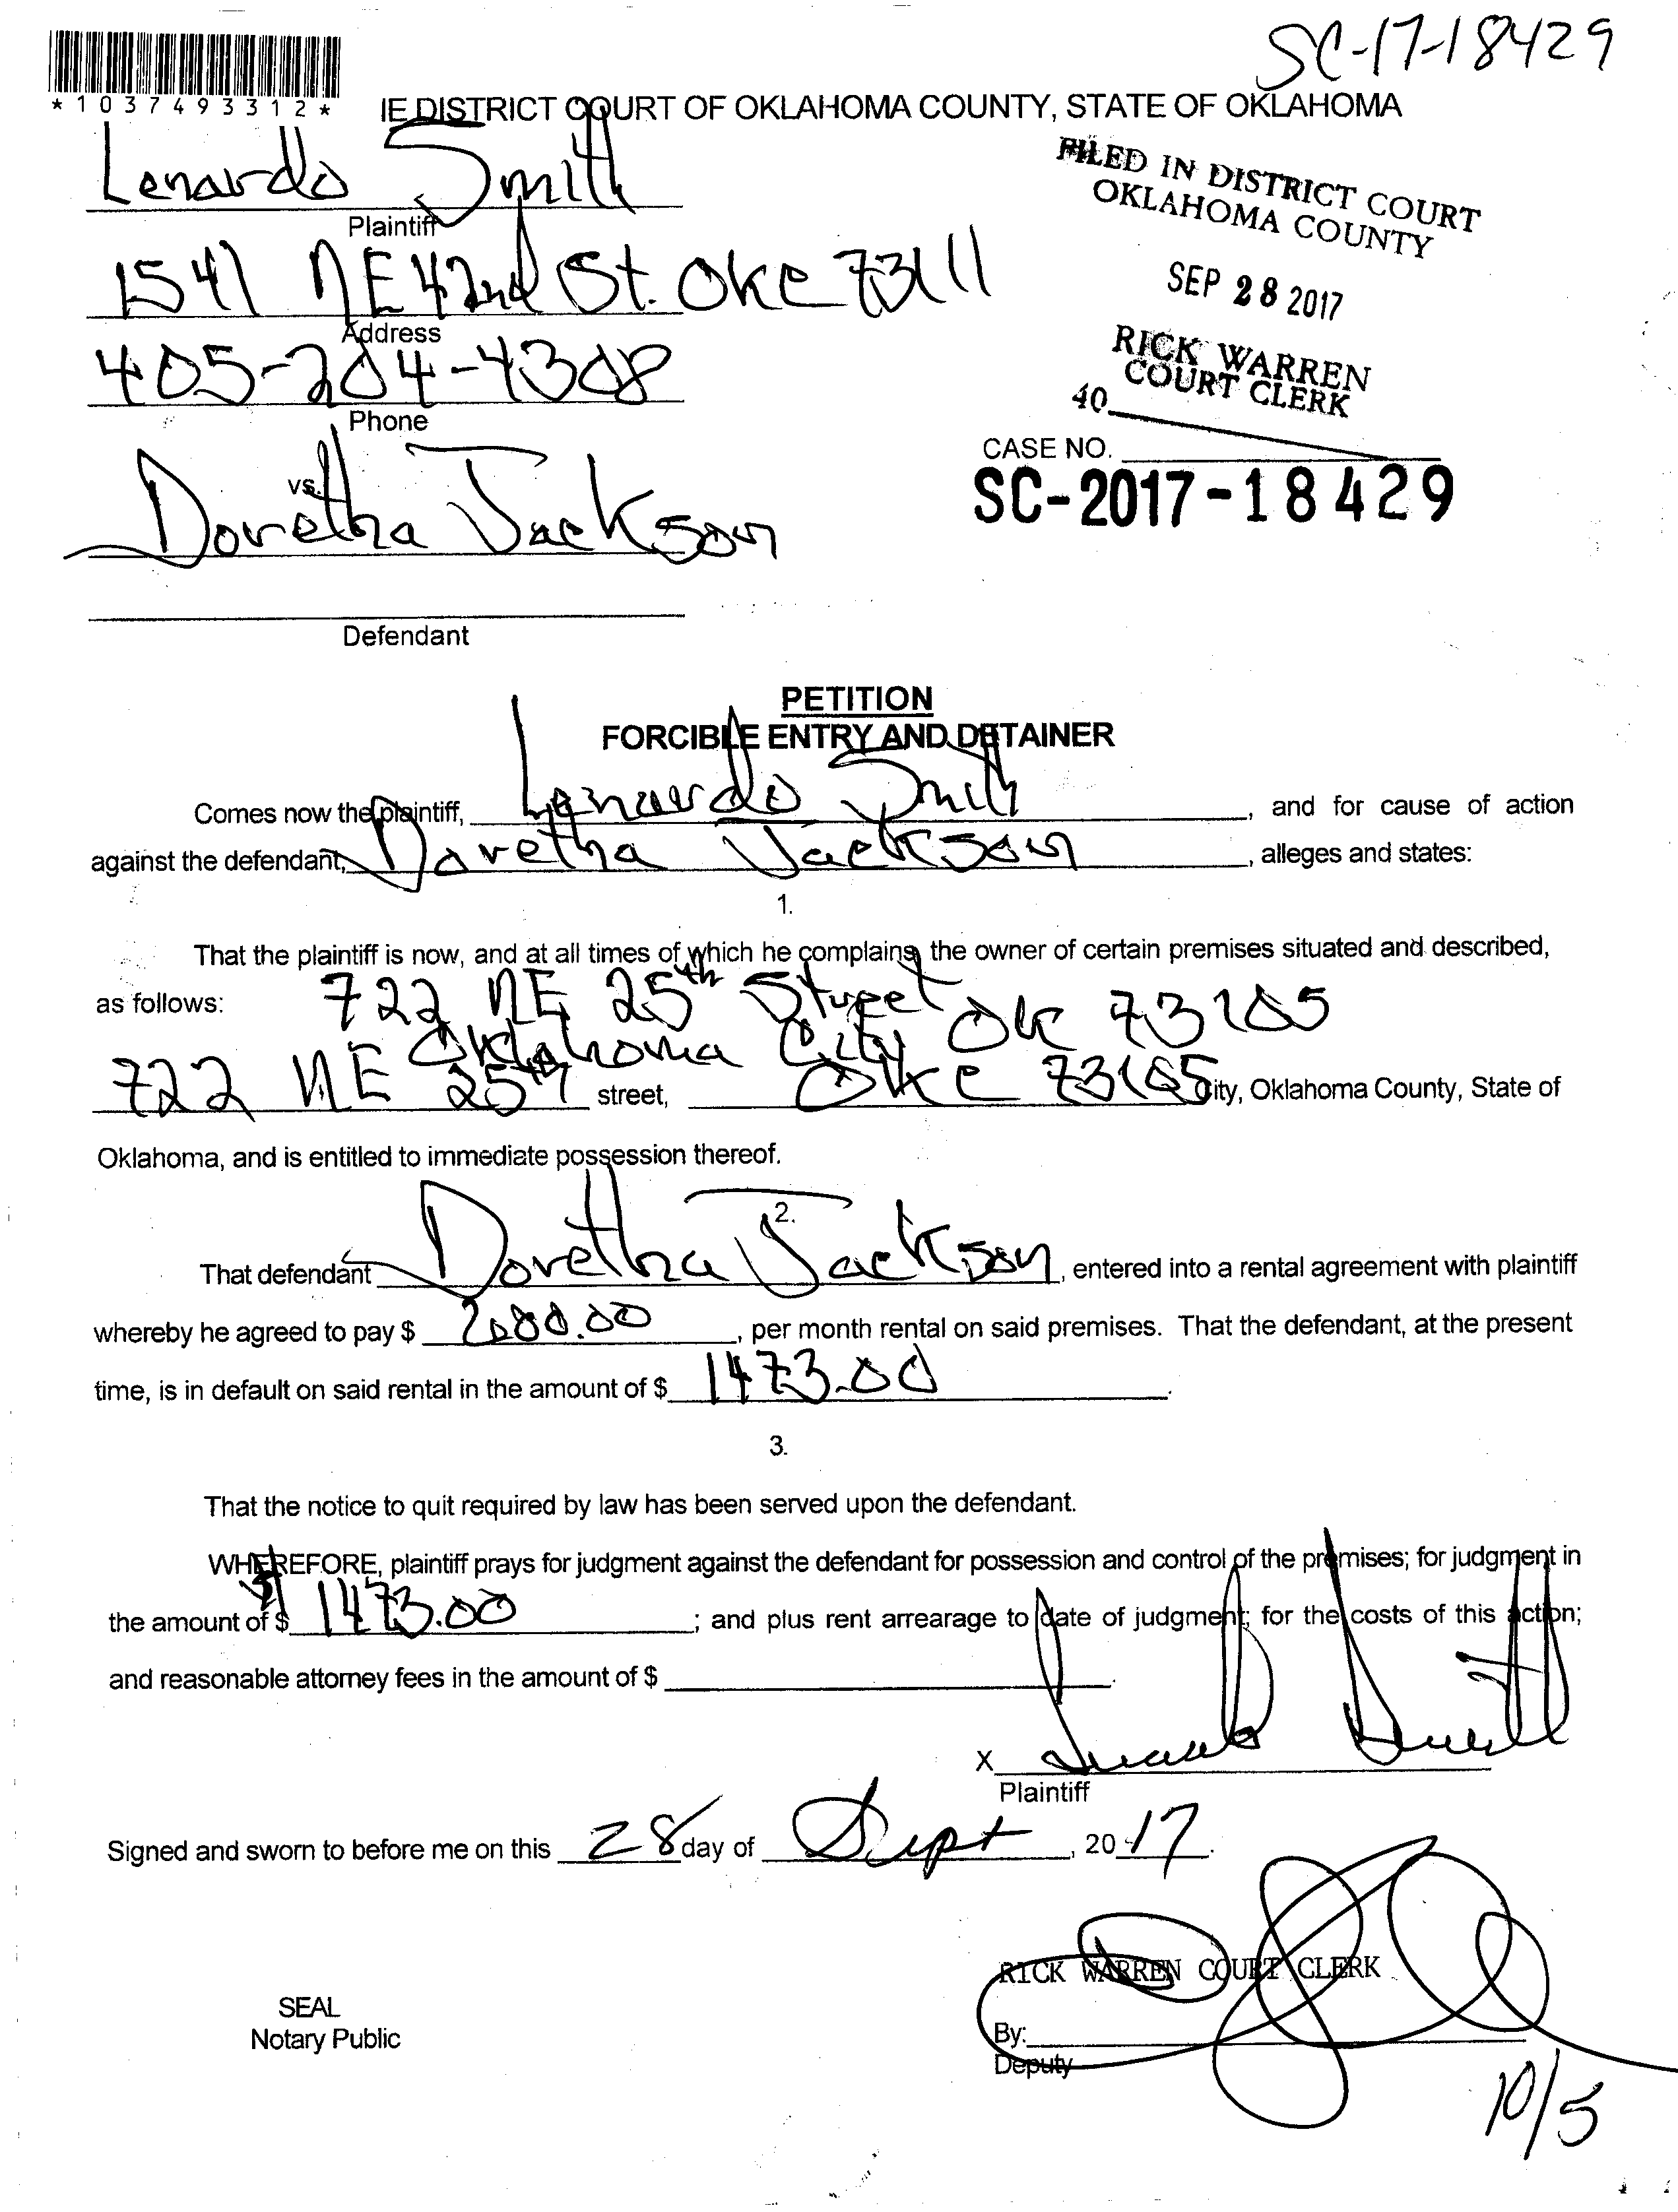 SC-17-18429
*1037493312*
IE DISTRICT COURT OF OKLAHOMA COUNTY, STATE OF OKLAHOMA
Lenardo Smith
Plaintiff
FILED IN DISTRICT COURT
OKLAHOMA COUNTY
1541 NE 42nd St. OKC 73111
Address
SEP 28 2017
405-204-4308
Phone
RICK WARREN
COURT CLERK
40
CASE NO.
SC-2017-18429
vs.
Doretha Jackson
Defendant
PETITION
FORCIBLE ENTRY AND DETAINER
Comes now the plaintiff, Lenardo Smith, and for cause of action
against the defendant, Doretha Jackson, alleges and states:
1.
That the plaintiff is now, and at all times of which he complains, the owner of certain premises situated and described,
as follows: 722 NE 25th Street
Oklahoma City OK 73105
722 NE 25th street, OKC 73105 City, Oklahoma County, State of
Oklahoma, and is entitled to immediate possession thereof.
2.
That defendant Doretha Jackson, entered into a rental agreement with plaintiff
whereby he agreed to pay $ , per month rental on said premises. That the defendant, at the present
time, is in default on said rental in the amount of $ 1473.00.
3.
That the notice to quit required by law has been served upon the defendant.
WHEREFORE, plaintiff prays for judgment against the defendant for possession and control of the premises; for judgment in
the amount of $ $1473.00; and plus rent arrearage to date of judgment; for the costs of this action;
and reasonable attorney fees in the amount of $ .
X
Plaintiff
Signed and sworn to before me on this 28 day of Sept, 2017.
RICK WARREN COURT CLERK
SEAL
Notary Public
By:
Deputy
10/5